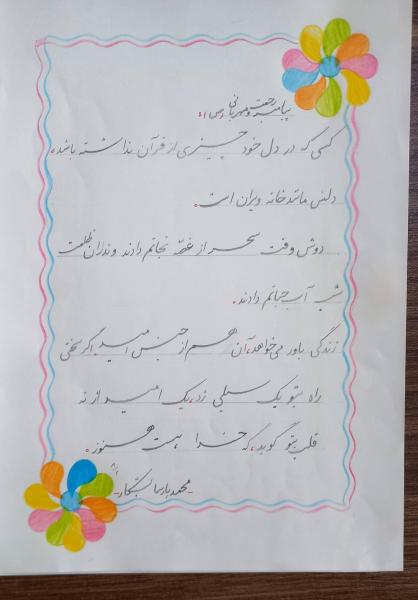 پیامبر رحمت و مهربانی (ص):
کسی که در دل خود چیزی از قرآن نداشته باشد،
دلش مانند خانه ویران است.
دوش وقت سحر از غصّه نجاتم دادند وندران ظلمت
شب آب حیاتم دادند.
زندگی باور می‌خواهد، آن هم از جنس امید اگر سختی
راه بتو یک سیلی زد، یک امید از ته
قلب بتو گوید، که خدا هست هنوز.
-محمد پارسا